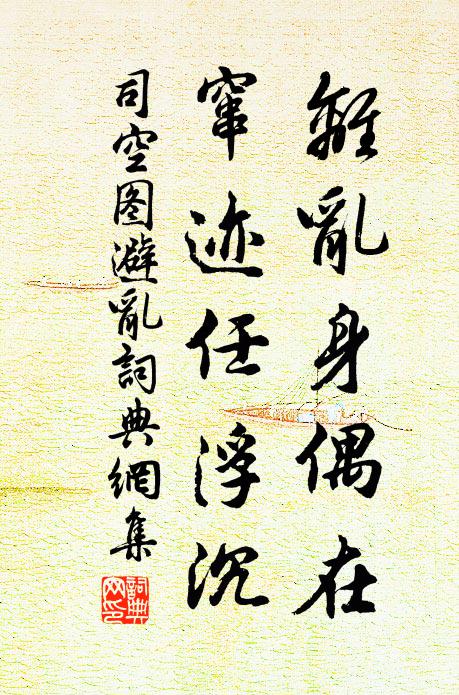 離亂身偶在
窜迹任浮沉
司空图避亂詞典網集
詞典
网印